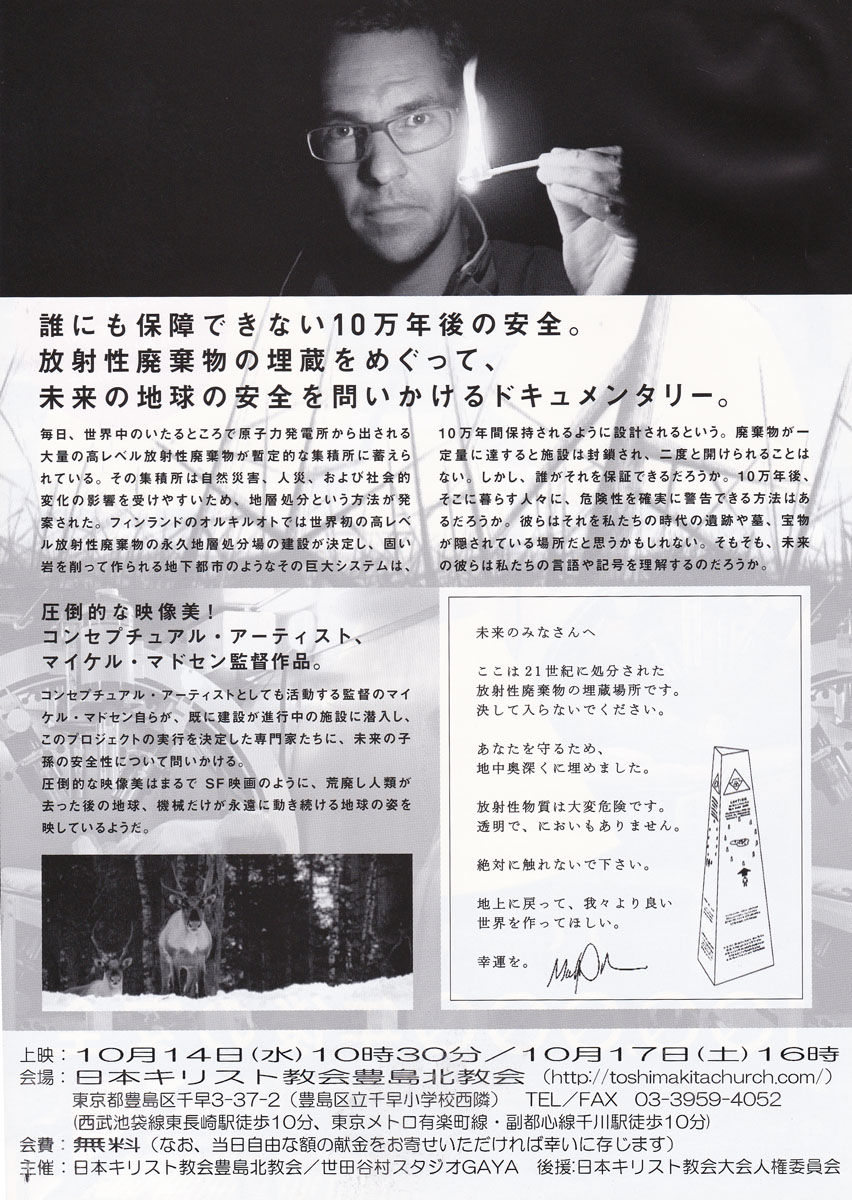 誰にも保障できない10万年後の安全。
放射性廃棄物の埋蔵をめぐって、
未来の地球の安全を問いかけるドキュメンタリー。
毎日、世界中のいたるところで原子力発電所から出される
大量の高レベル放射性廃棄物が暫定的な集積所に蓄えら
れている。その集積所は自然災害、人災、および社会的
変化の影響を受けやすいため、地層処分という方法が発
案された。フィンランドのオルキルオトでは世界初の高レベ
ル放射性廃棄物の永久地層処分場の建設が決定し、固い
岩を削って作られる地下都市のようなその巨大システムは、
10万年間保持されるように設計されるという。廃棄物が一
定量に達すると施設は封鎖され、二度と開けられることは
ない。しかし、誰がそれを保証できるだろうか。10万年後、
そこに暮らす人々に、危険性を確実に警告できる方法はあ
るだろうか。彼らはそれを私たちの時代の遺跡や墓、宝物
が隠されている場所だと思うかもしれない。そもそも、未来
の彼らは私たちの言語や記号を理解するのだろうか。
圧倒的な映像美！
コンセプチュアル・アーティスト、
マイケル・マドセン監督作品。
コンセプチュアル・アーティストとしても活動する監督のマイ
ケル・マドセン自らが、既に建設が進行中の施設に潜入し、
このプロジェクトの実行を決定した専門家たちに、未来の子
孫の安全性について問いかける。
圧倒的な映像美はまるで SF 映画のように、荒廃し人類が
去った後の地球、機械だけが永遠に動き続ける地球の姿を
映しているようだ。
未来のみなさんへ
ここは21世紀に処分された
放射性廃棄物の埋蔵場所です。
決して入らないでください。
あなたを守るため、
地中奥深くに埋めました。
放射性物質は大変危険です。
透明で、においもありません。
絶対に触れないで下さい。
地上に戻って、我々より良い
世界を作ってほしい。
幸運を。
上映：10月14日(水)10時30分／10月17日(土)16時
会場：日本キリスト教会豊島北教会（http://toshimakitachurch.com/）
東京都豊島区千早3-37-2（豊島区立千早小学校西隣） TEL／FAX 03-3959-4052
(西武池袋線東長崎駅徒歩10分、東京メトロ有楽町線・副都心線千川駅徒歩10分)
会費：無料（なお、当日自由な額の献金をお寄せいただければ幸いに存じます）
主催：日本キリスト教会豊島北教会／世田谷村スタジオGAYA 後援:日本キリスト教会大会人権委員会